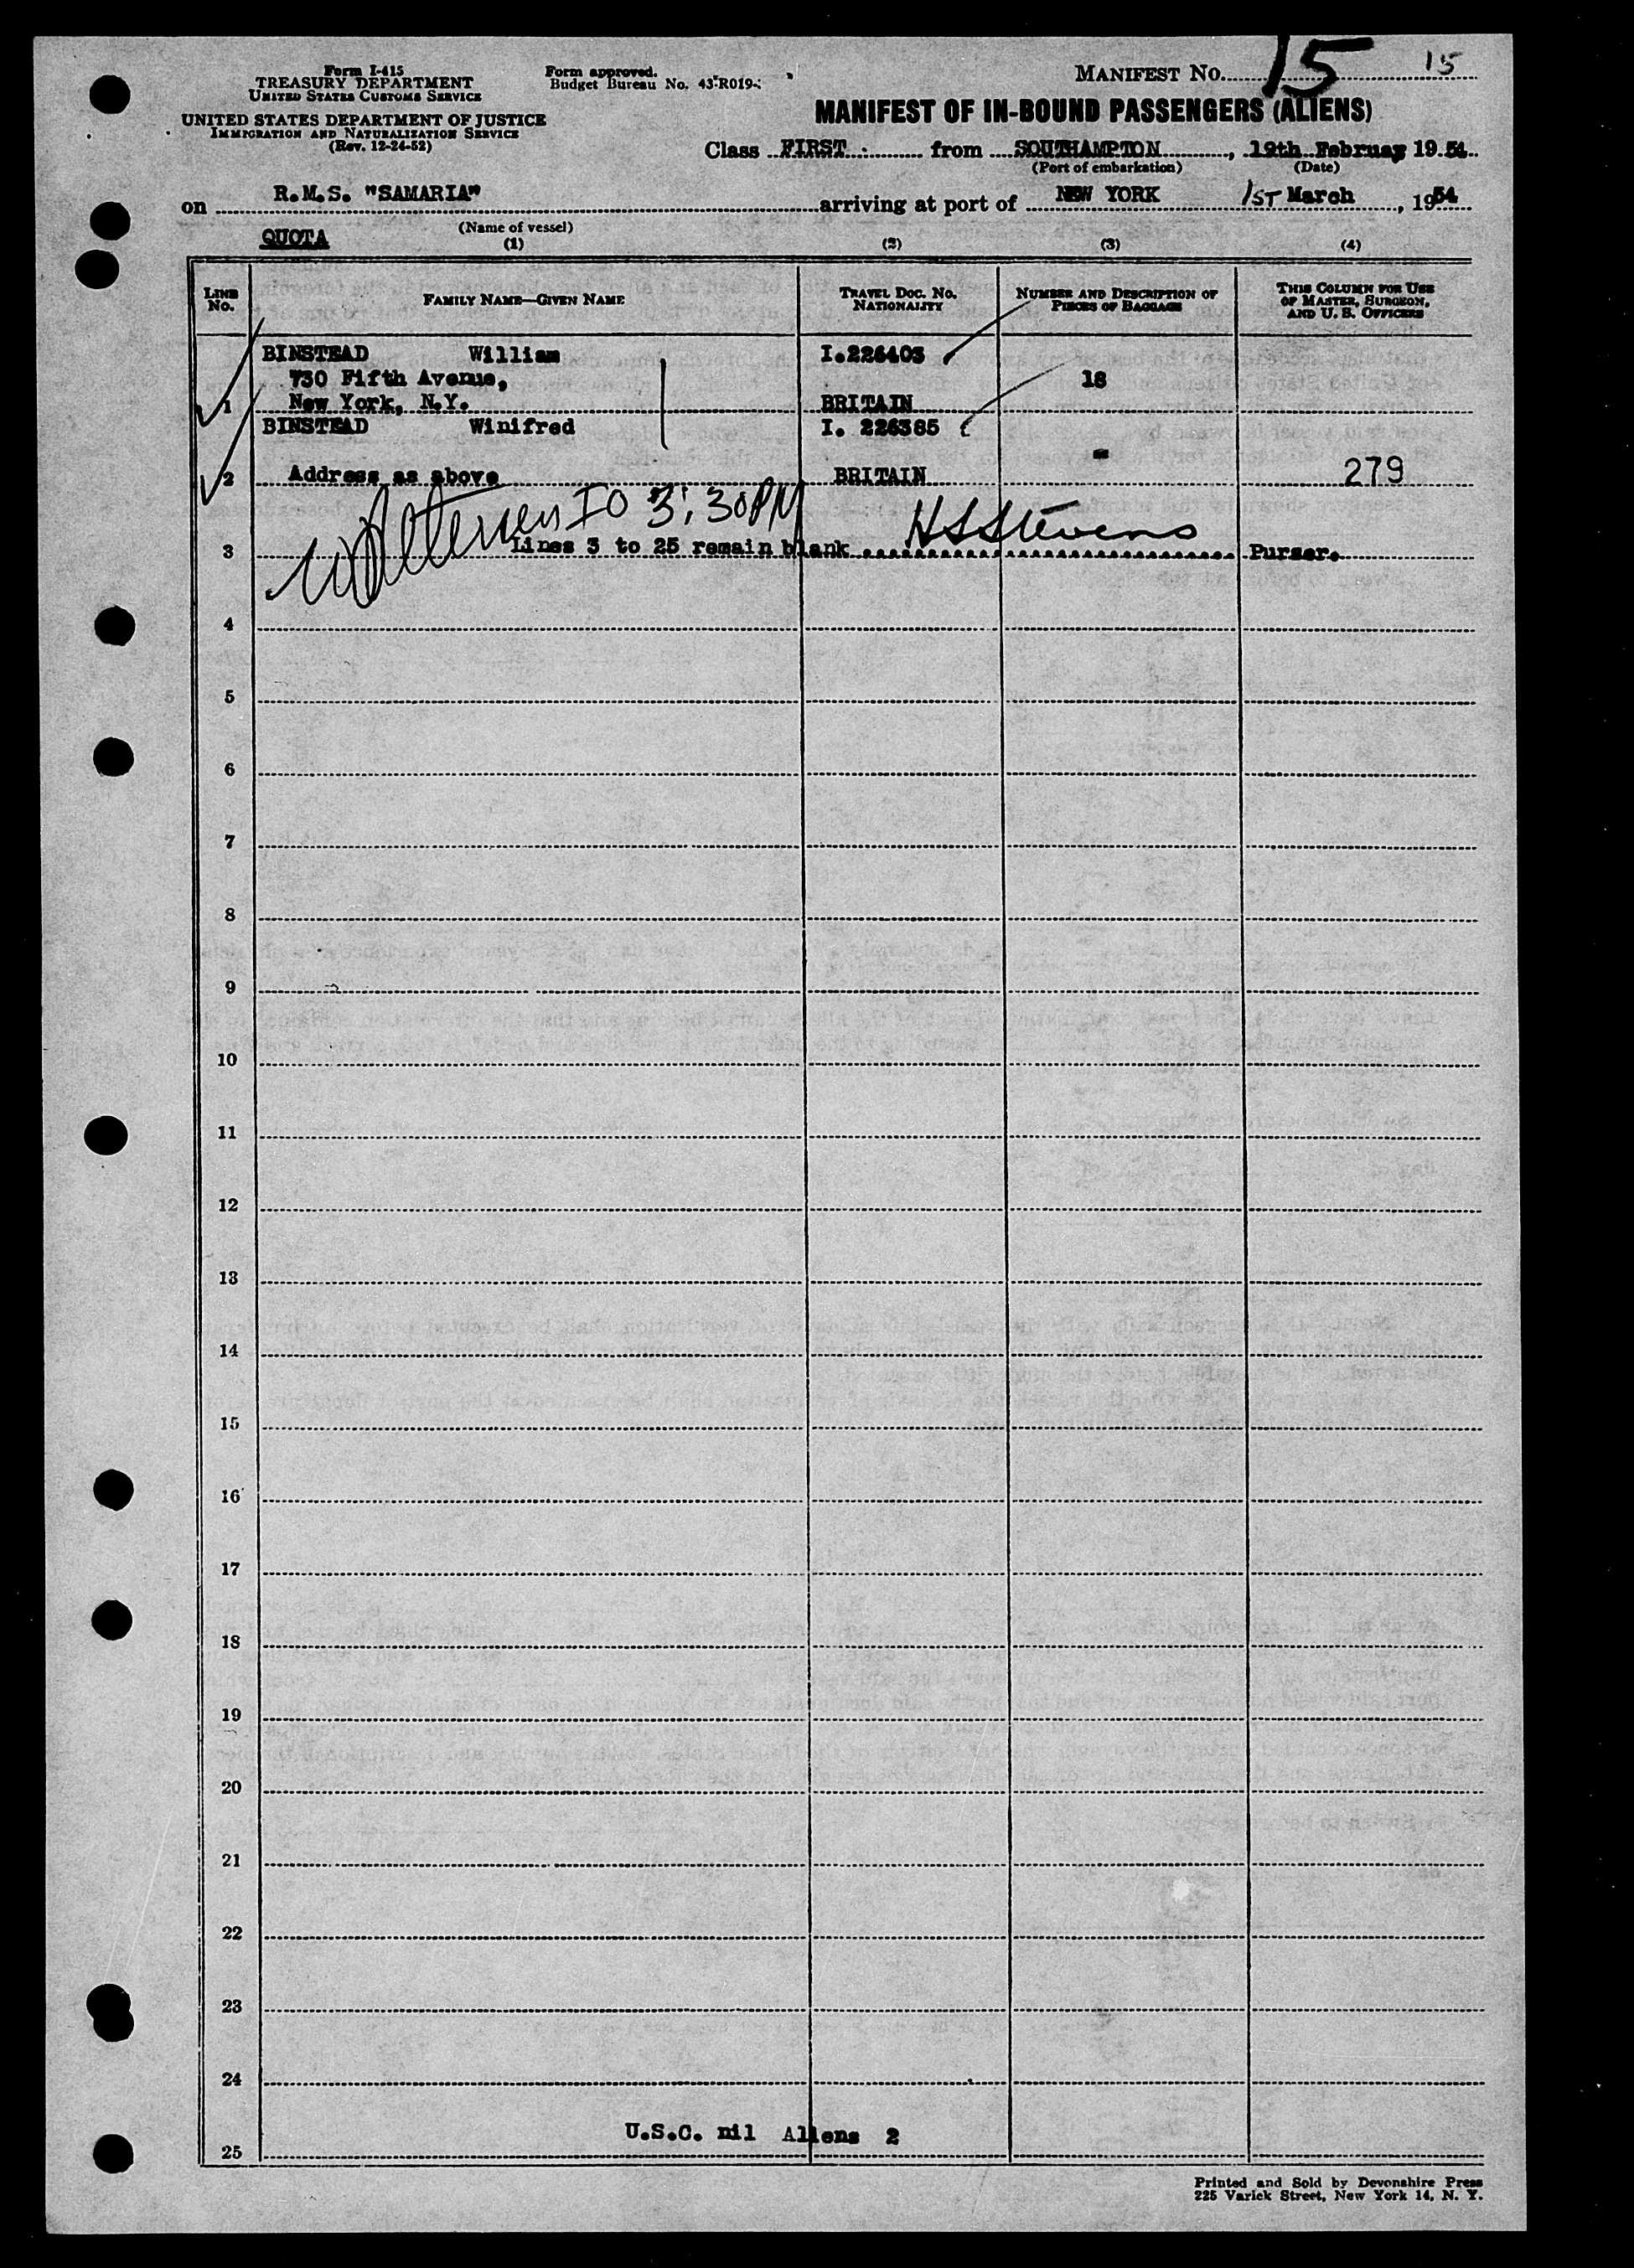 Form I-415
TREASURY DEPARTMENT
UNITED STATES CUSTOMS SERVICE
UNITED STATES DEPARTMENT OF JUSTICE
IMMIGRATION AND NATURALIZATION SERVICE
(Rev. 12-24-52)
Form approved.
Budget Bureau No. 43-R019-
MANIFEST NO. 15 15
MANIFEST OF IN-BOUND PASSENGERS (ALIENS)
Class FIRST from SOUTHAMPTON, 19th February 1954
(Port of embarkation) (Date)
on R.M.S. "SAMARIA" arriving at port of NEW YORK 1ST March, 1954
(Name of vessel)
QUOTA
(1) (2) (3) (4)
LINE NO. FAMILY NAME—GIVEN NAME TRAVEL DOC. NO. NATIONALITY NUMBER AND DESCRIPTION OF PIECES OF BAGGAGE THIS COLUMN FOR USE OF MASTER, SURGEON, AND U. S. OFFICERS
BINSTEAD William I.226403
730 Fifth Avenue, 18
1 New York, N.Y. BRITAIN
BINSTEAD Winifred I. 226385
2 Address as above BRITAIN - 279
IO 3:30PM
3 Lines 3 to 25 remain blank HSStevens Purser.
4
5
6
7
8
9
10
11
12
13
14
15
16
17
18
19
20
21
22
23
24
U.S.C. nil Aliens 2
25
Printed and Sold by Devonshire Press
225 Varick Street, New York 14, N. Y.